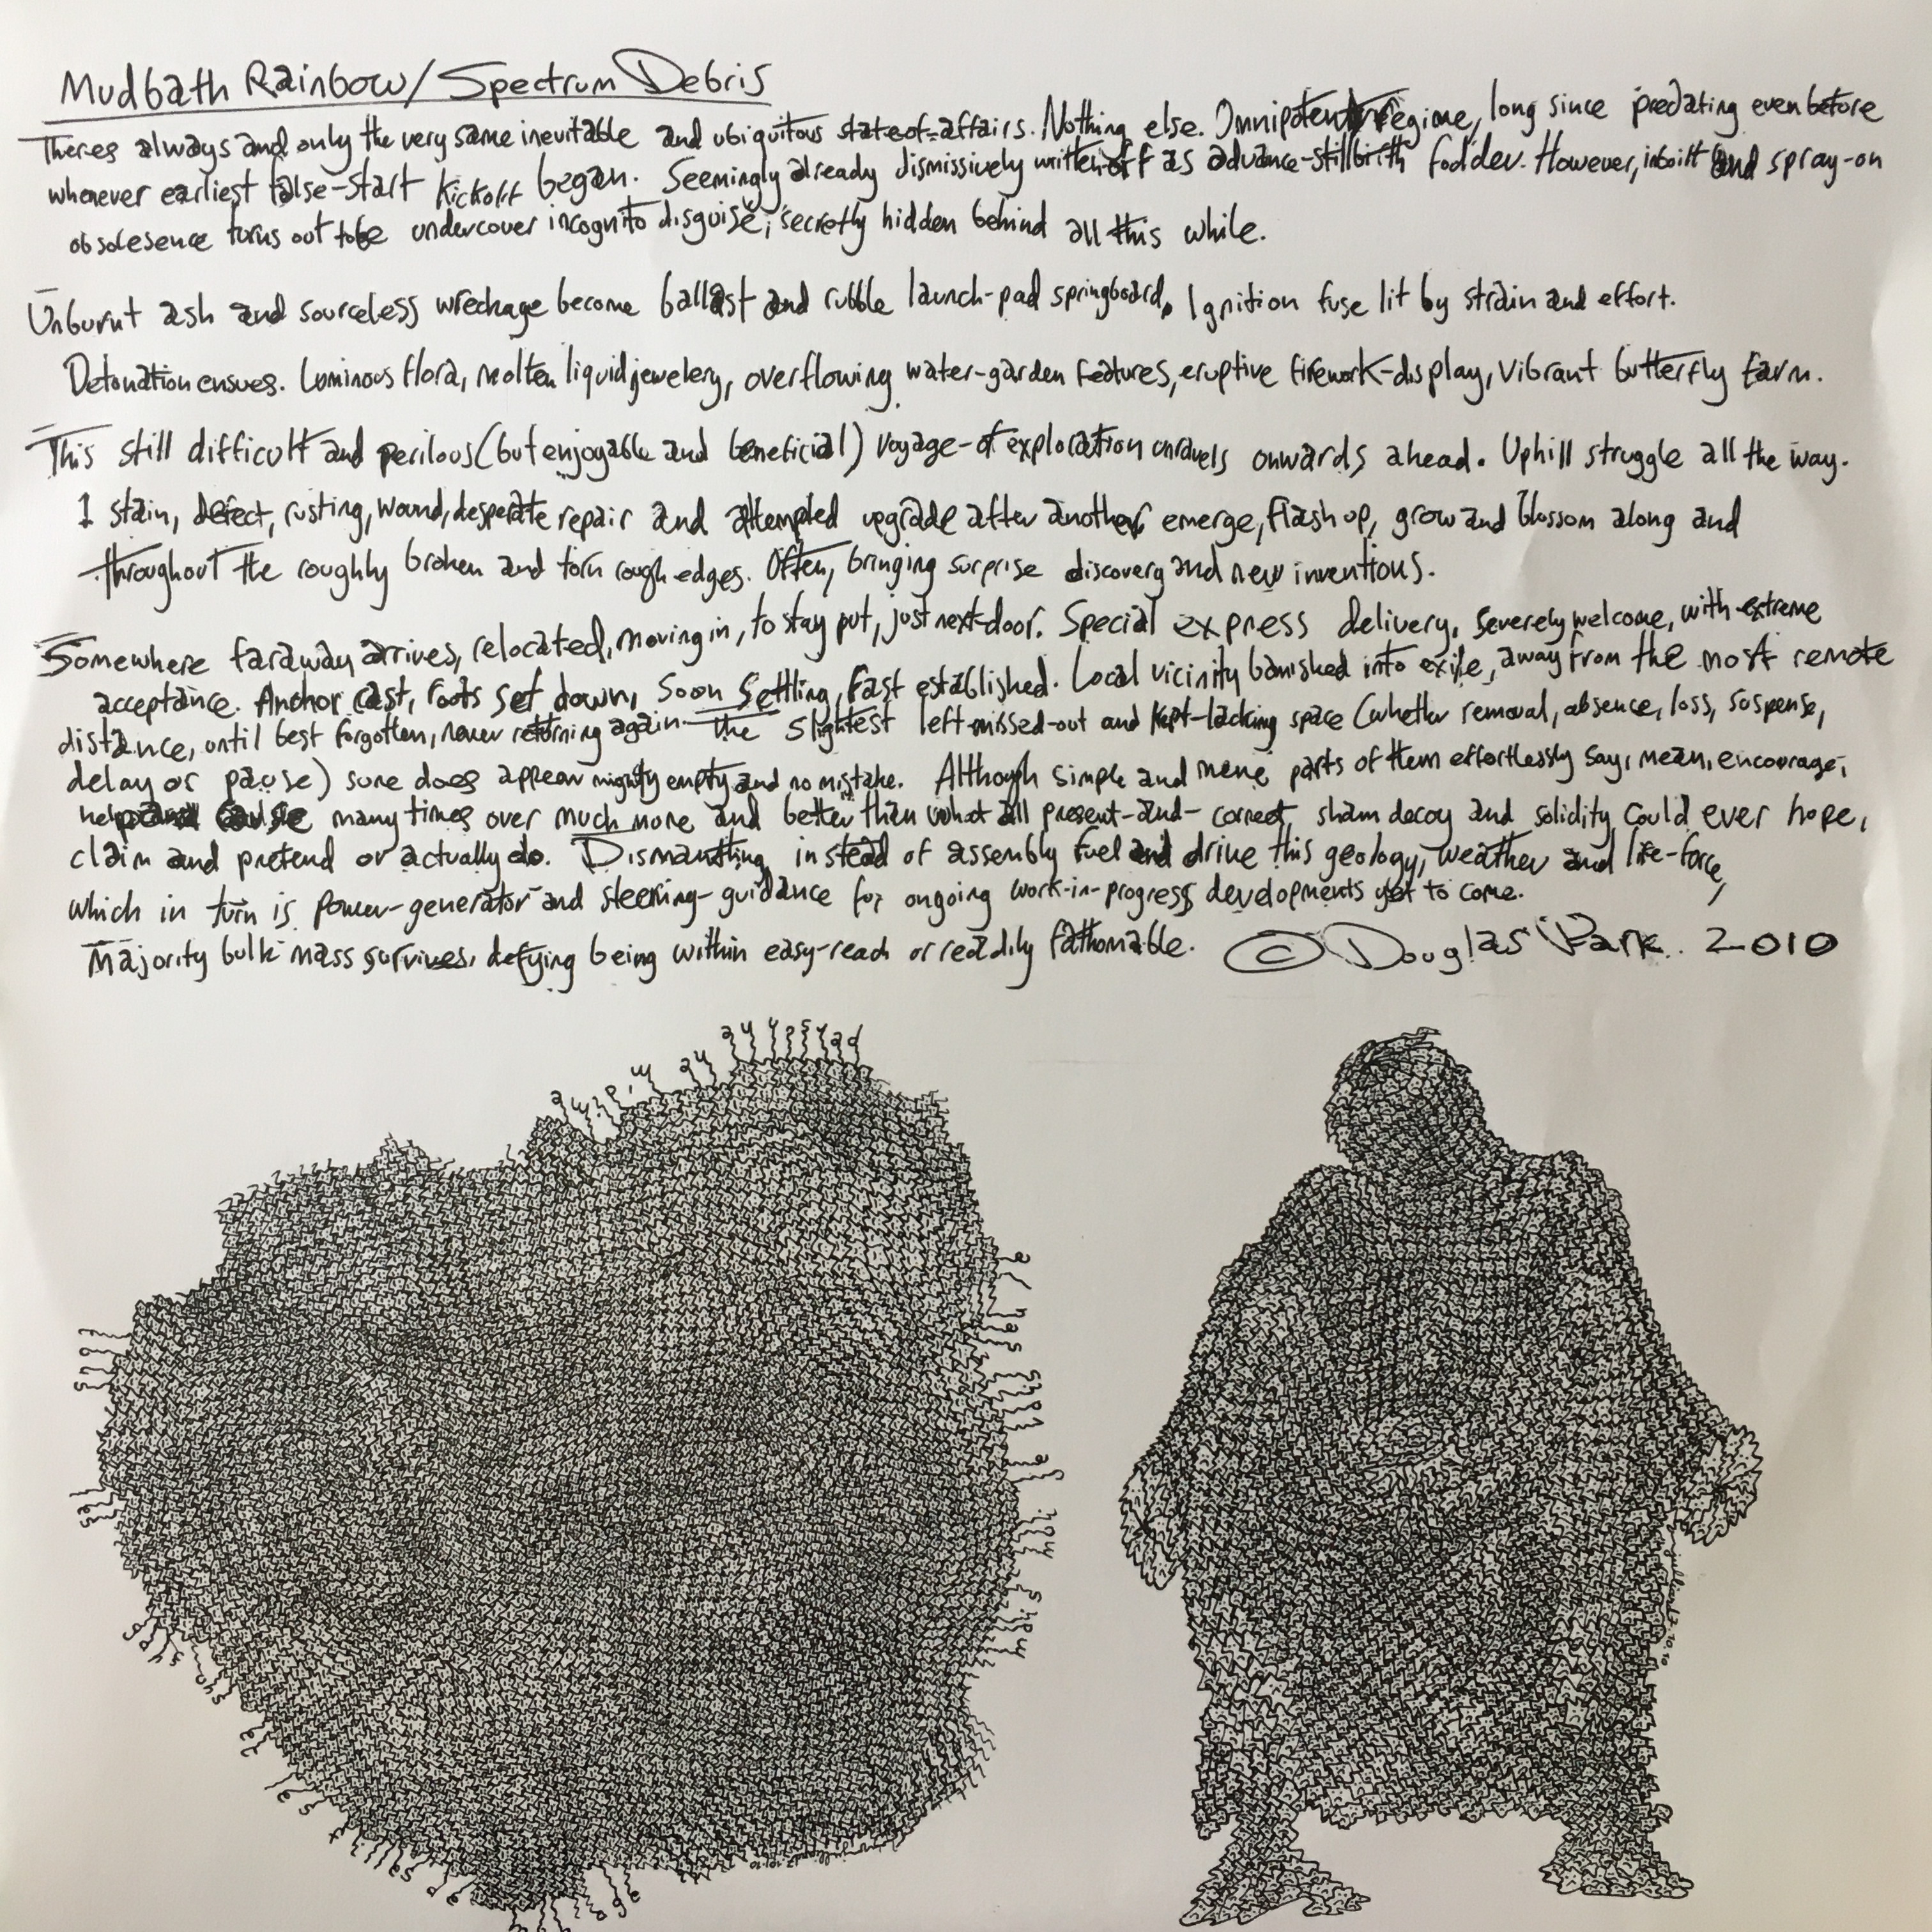 Mudbath Rainbow/Spectrum Debris
Theres always and only the very same inevitable and ubiquitous state-of-affairs. Nothing else. Omnipotent regime, long since predating even before
whenever earliest false-start kickoff began. Seemingly already dismissively written-off as advance-stillbirth fodder. However, inbuilt and spray-on
obsolesence turns out to be undercover incognito disguise; secretly hidden behind all this while.
Unburnt ash and sourceless wreckage become ballast and rubble launch-pad springboard. Ignition fuse lit by strain and effort.
Detonation ensues. Luminous flora, molten liquid jewelery, overflowing water-garden features, eruptive firework-display, vibrant butterfly farm.
This still difficult and perilous (but enjoyable and beneficial) voyage-of exploration unravels onwards ahead. Uphill struggle all the way.
1 stain, defect, rusting, wound, desperate repair and attempted upgrade after another emerge, flash up, grow and blossom along and
throughout the roughly broken and torn rough edges. Often, bringing surprise discovery and new inventions.
Somewhere faraway arrives, relocated, moving in, to stay put, just next-door. Special express delivery, severely welcome, with extreme
acceptance. Anchor cast, roots set down, soon settling, fast established. Local vicinity banished into exile, away from the most remote
distance, until best forgotten, never returning again. The slightest left-missed-out and kept-lacking space (whether removal, absence, loss, suspense,
delay or pause) sure does appear mighty empty and no mistake. Although simple and mere parts of them effortlessly say, mean, encourage,
help and cause many times over much more and better than what all present-and-correct, sham decoy and solidity could ever hope,
claim and pretend or actually do. Dismantling instead of assembly fuel and drive this geology, weather and life-force,
which in turn is power-generator and steering-guidance for ongoing work-in-progress developments yet to come.
Majority bulk mass survives, defying being within easy-reach or readily fathomable. © Douglas Park. 2010